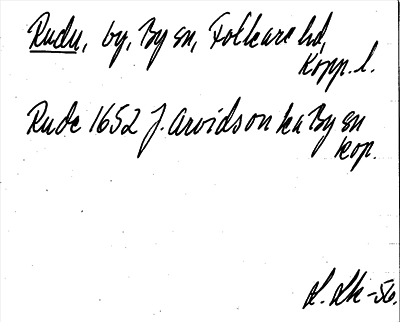 Rudu, by, By sn, Folkare hd,
Kopp. l.
Rude 1652 J. Arvidson ka By sn
kop.
L. Lk -56.